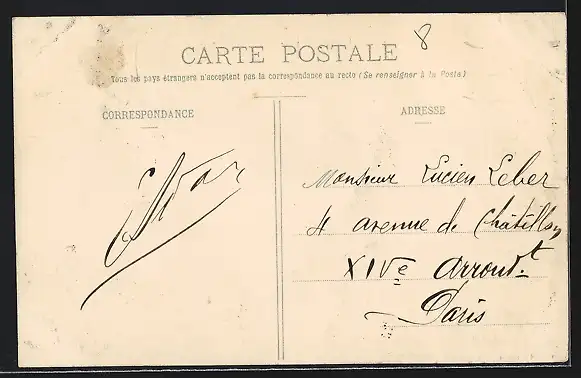 8
CARTE POSTALE
Tous les pays étrangers n'acceptent pas la correspondance au recto (Se renseigner à la Poste)
CORRESPONDANCE
ADRESSE
Monsieur Lucien Leber
4 avenue de Châtillon
XIVe Arrondt
Paris